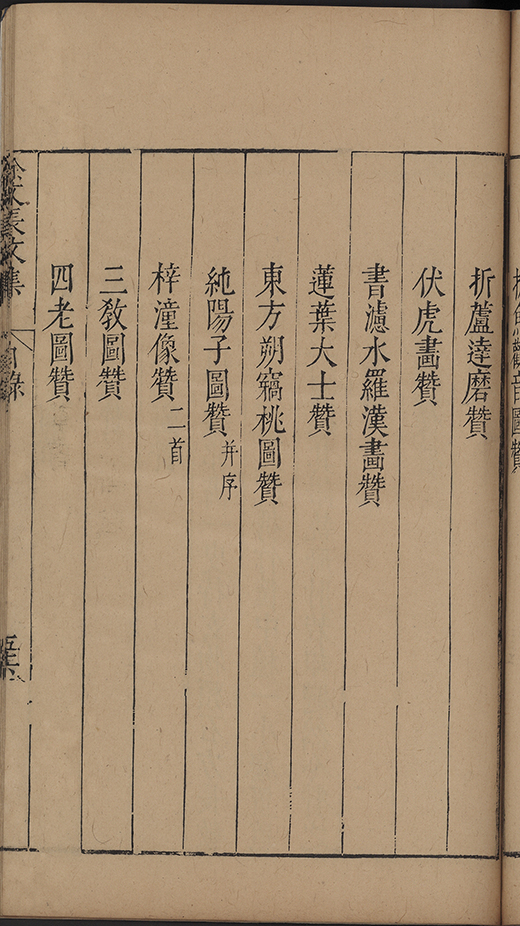 圖贊
折蘆達磨贊
伏虎畫贊
書濾水羅漢畫贊
蓮葉大士贊
東方朔竊桃圖贊
純陽子圖贊并序
梓潼像贊二首
三教圖贊
四老圖贊
徐文長文集 目錄